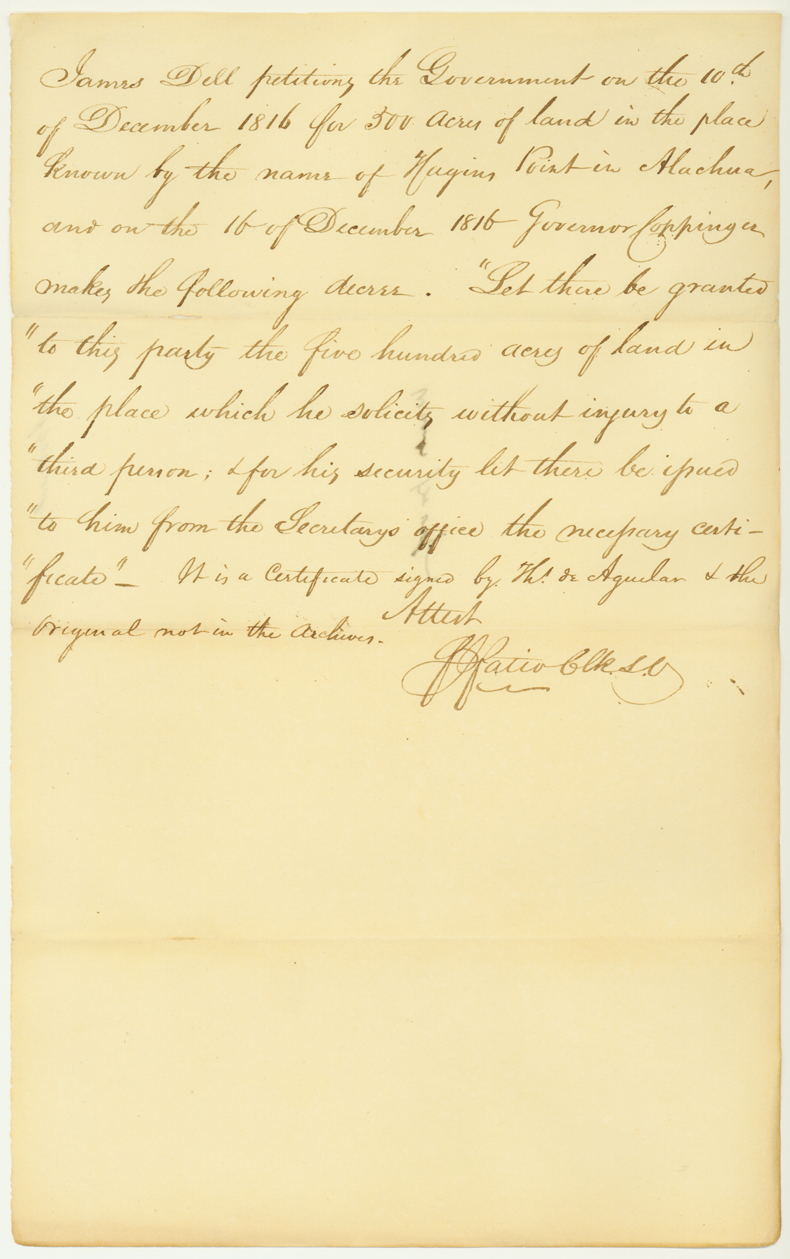 James Dell petitions the Government on the 10th
of December 1816 for 500 Acres of land in the place
known by the name of Hagins Point in Alachua,
and on the 16 of December 1816 Governor Coppinger
makes the following decree. "Let there be granted
"to this party the five hundred acres of land in
"the place which he solicits without injury to a
"third person; & for his security let there be issued
"to him from the Secretarys office the necessary certi-
"ficate"— It is a Certificate signed by Ths. de Aguilar & the
Original not in the Archives.
Attest
F J Fatio Clk. S.C